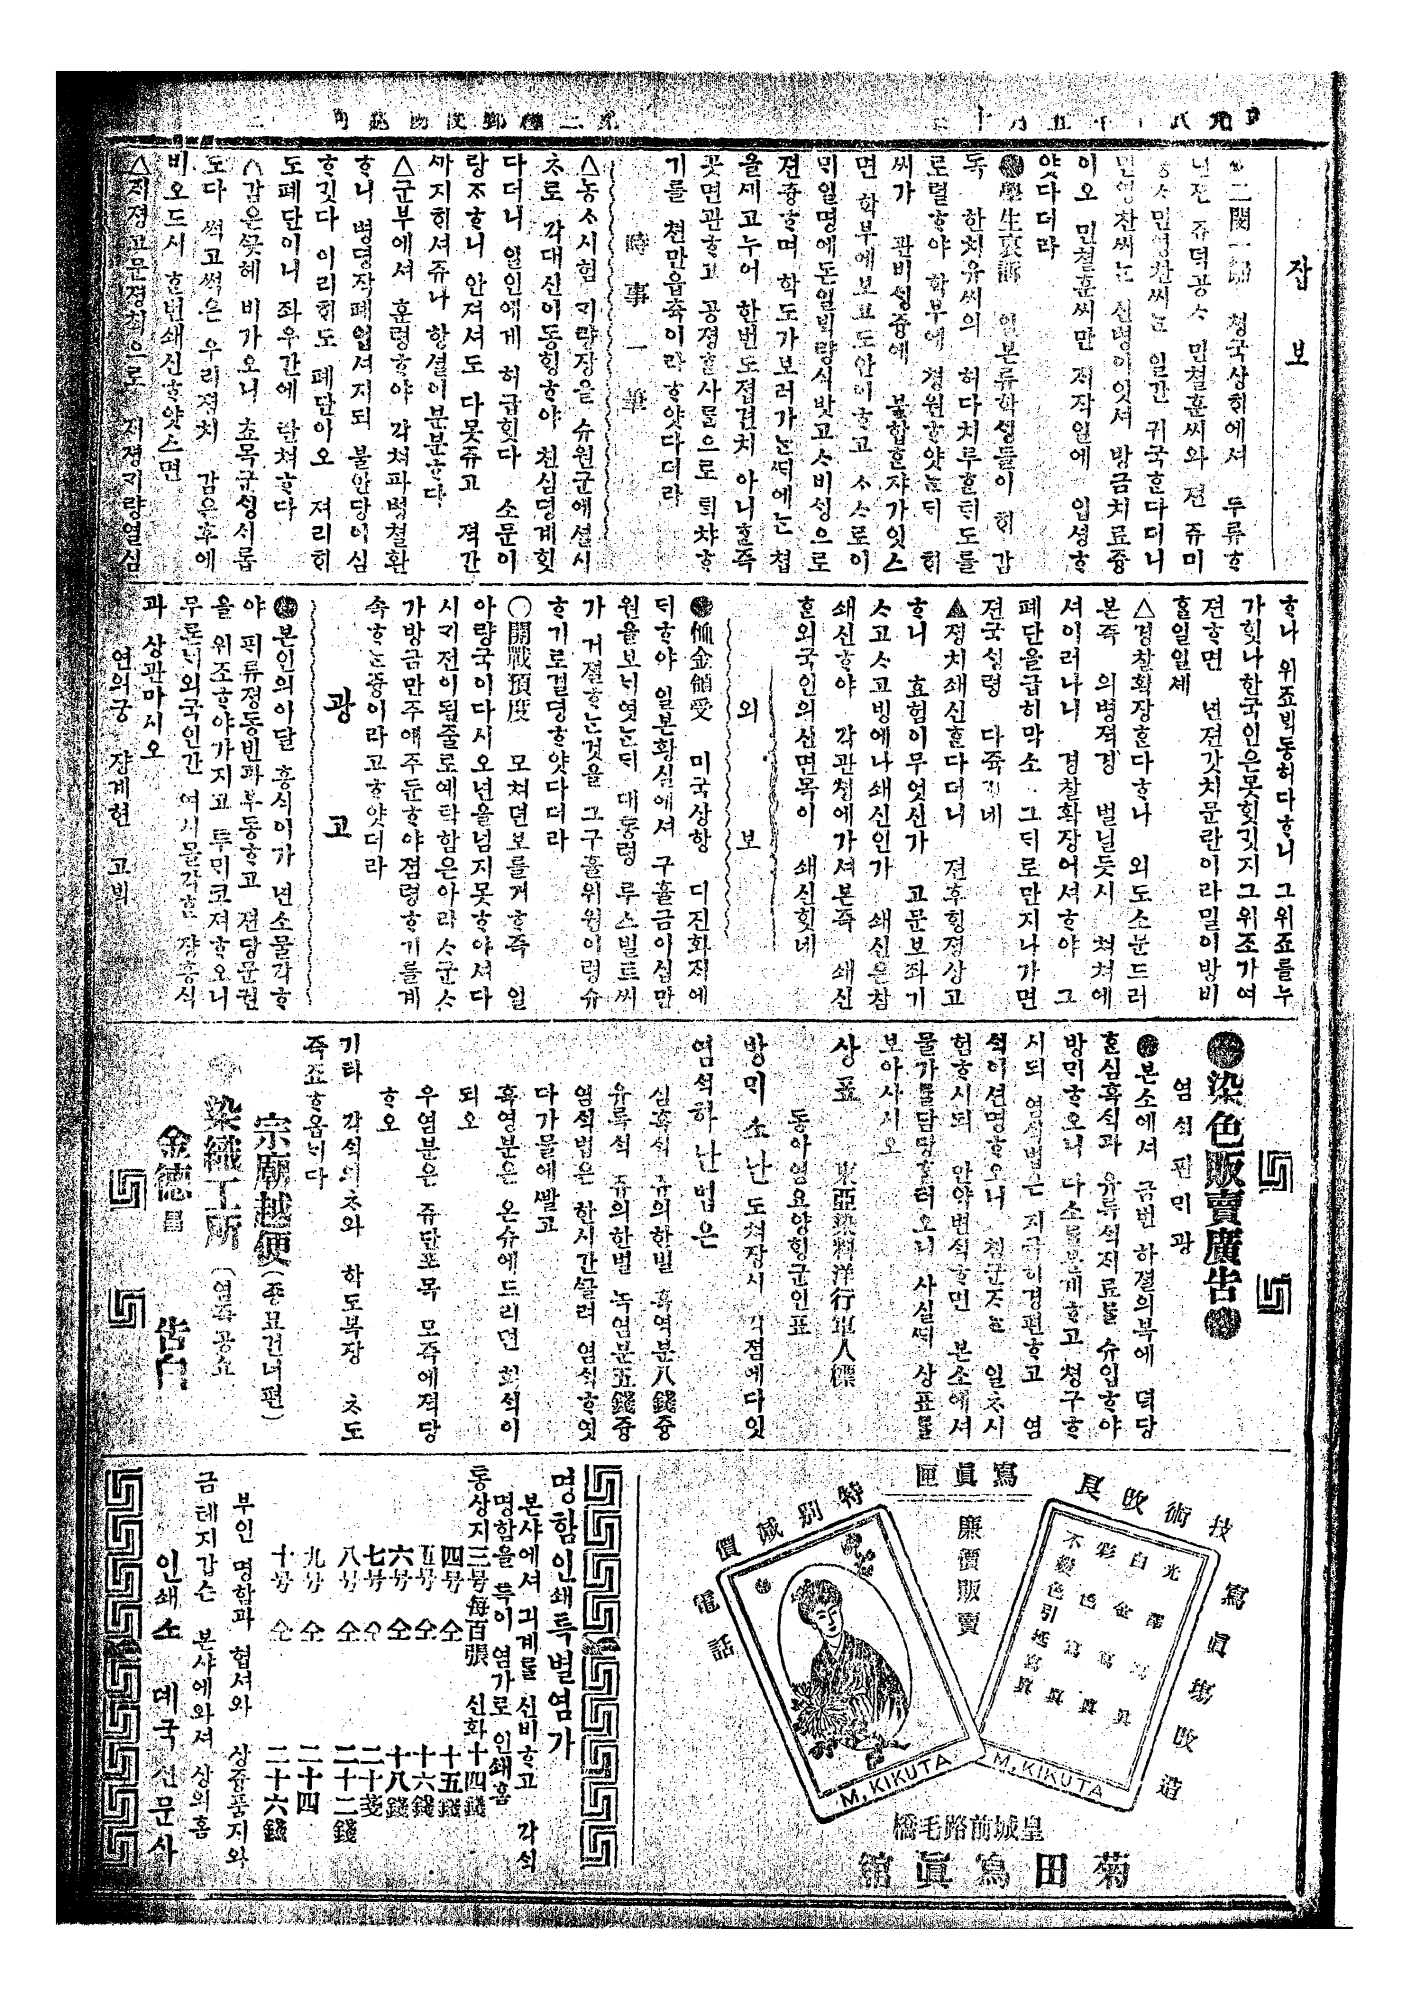 잡보
二閔一歸 청국상ᄒᆡ에셔 두류ᄒᆞ
년젼 쥬덕공ᄉᆞ 민쳘훈씨와 젼 쥬미
공ᄉᆞ민영찬씨ᄂᆞᆫ 일간 귀국ᄒᆞᆫ다더니
민영찬씨ᄂᆞᆫ 신병이잇셔 방금치료즁
이오 민쳘훈씨만 ᄌᆡ작일에 입셩ᄒᆞ
얏다더라
學生哀訴 일본류학ᄉᆡᆼ들이 ᄒᆡ 감
독 한치유씨의 허다치루ᄒᆞᆫᄒᆡᆼ도를
로렬ᄒᆞ야 학부에 쳥원ᄒᆞ얏ᄂᆞᆫᄃᆡ ᄒᆡ
씨가 관비ᄉᆡᆼ즁에 불합ᄒᆞᆫ쟈가잇스
면 학부에보고도안이ᄒᆞ고 ᄉᆞᄉᆞ로이
ᄆᆡ일명에돈일ᄇᆡᆨ량식 밧고ᄉᆞ비ᄉᆡᆼ으로
젼츙ᄒᆞ며 학도가보러가ᄂᆞᆫᄯᆡ에ᄂᆞᆫ 쳡
을셰고누어 한번도졉견치 아니ᄒᆞᆫ즉
곳면관ᄒᆞ고 공졍ᄒᆞᆫ사ᄅᆞᆷ으로 퇴챠ᄒᆞ
기를 쳔만읍츅이라ᄒᆞ얏다더라
時事一筆
△농ᄉᆞ시험ᄌᆡ량쟝을 슈원군에셜시
ᄎᆞ로 각대신이동ᄒᆡᆼᄒᆞ야 친심뎡계ᄒᆡᆺ
다더니 일인에게 허급ᄒᆡᆺ다 소문이
랑ᄌᆞᄒᆞ니 안져셔도 다못쥬고 젹간
ᄭᆞ지ᄒᆡ셔쥬나 항셜이분분ᄒᆞ다
△군부에셔 훈령ᄒᆞ야 각쳐파병쳘환
ᄒᆞ니 병명쟝폐업셔지되 불안당이심
ᄒᆞ깃다 이리ᄒᆡ도 폐단이오 져리ᄒᆡ
도폐단이니 좌우간에 란쳐ᄒᆞ다
△갑은ᄭᅩᆺ헤 비가오니 쵸목군ᄉᆡᆼ시롭
도다 썩고썩은 우리졍치 감은후에
비오드시 ᄒᆞᆫ번쇄신ᄒᆞ얏스면
△ᄌᆡ졍고문졍ᄎᆡᆨ으로 ᄌᆡ졍ᄌᆡ량열심
ᄒᆞ나 위죠ᄇᆡᆨ동허다ᄒᆞ니 그위죠를누
가ᄒᆡᆺ나한국인은못ᄒᆡᆺ깃지그위조가여
젼ᄒᆞ면 년젼갓치문란이라밀이방비
ᄒᆞᆯ일일셰
△경찰확장ᄒᆞᆫ다ᄒᆞ나 외도소문드러
본즉 의병젹경 벌닐듯시 쳐쳐에
셔이러나니 경찰확장어셔ᄒᆞ야 그
폐단을급히막소 그ᄃᆡ로만지나가면
젼국ᄉᆡᆼ령 다쥭겟네
△졍치쇄신ᄒᆞᆫ다더니 젼후ᄒᆡᆼ졍상고
ᄒᆞ니 효험이무엇신가 고문보좌기
ᄉᆞ고ᄉᆞ고빙에나쇄신인가 쇄신은참
쇄신ᄒᆞ야 각관쳥에가셔본즉 쇄신
ᄒᆞᆫ외국인의ᄉᆡᆫ면목이 쇄신ᄒᆡᆺ네
외보
恤金領受 미국상항 디진화ᄌᆡ에
ᄃᆡᄒᆞ야 일본황실에셔 구휼금이십만
원을보ᄂᆡ엿ᄂᆞᆫᄃᆡ 대통령 루스벨트씨
가 거졀ᄒᆞᄂᆞᆫ것을 그구휼위원이령슈
ᄒᆞ기로결뎡ᄒᆞ얏다더라
○開戰預度 모쳐뎐보를거ᄒᆞᆫ즉 일
아량국이다시 오년을넘지못ᄒᆞ야셔다
시ᄀᆡ젼이될줄로예탁함은아라ᄉᆞ군ᄉᆞ
가방금만쥬에쥬둔ᄒᆞ야졈령ᄒᆞ기를계
속ᄒᆞᄂᆞᆫ즁이라고ᄒᆞ얏더라
광고
본인의아달 흥식이가 년소물각ᄒᆞ
야 ᄑᆡ류졍동빈과부동ᄒᆞ고 젼당문권
을 위조ᄒᆞ야가지고 투ᄆᆡ코져ᄒᆞ오니
무론ᄂᆡ외국인간 여시물각ᄒᆞᆫ 쟝흥식
과 상관마시오
연의궁 쟝계현 고ᄇᆡᆨ
染色販賣廣告
염ᄉᆡᆨ판ᄆᆡ광
본소에셔 금번 하졀의부에 뎍당
ᄒᆞᆫ심흑ᄉᆡᆨ과 유록ᄉᆡᆨᄌᆡ료를 슈입ᄒᆞ야
방ᄆᆡᄒᆞ오니 다소를분ᄀᆡᄒᆞ고 쳥구ᄒᆞ
시되 염ᄉᆡᆨ법은 지극히경편ᄒᆞ고 염
ᄉᆡᆨ이션명ᄒᆞ오니 쳠군ᄌᆞᄂᆞᆫ 일ᄎᆞ시
험ᄒᆞ시되 만약변ᄉᆡᆨᄒᆞ면 본소에셔
물가를담당ᄒᆞᆯ터오니 사실ᄯᅢ 상표를
보아사시오
상표 東亞染料洋行軍人標
동아염요양ᄒᆡᆼ군인표
방ᄆᆡ소난 도쳐쟝시 각졈에다잇
염ᄉᆡᆨ하난법은
심흑ᄉᆡᆨ 쥬의한벌 흑역분八錢즁
유록ᄉᆡᆨ 쥬의한벌 녹염분五錢즁
염ᄉᆡᆨ법은 한시간ᄭᅳᆯ려 염ᄉᆡᆨᄒᆞ엿
다가물에ᄲᅡᆯ고
흑영분은 온슈에드리면 회ᄉᆡᆨ이
되오
우염분은 쥬단포목 모죡에젹당
ᄒᆞ오
기타 각ᄉᆡᆨ의ᄎᆞ와 학도복쟝 ᄎᆞ도
죡죠ᄒᆞ옵ᄂᆡ다
宗廟越便(죵묘건너편)
染織工所(염즉공쇼)
金德昌 告白
技術改良 寫眞場改造
寫眞匣
廉價販賣
特別减價
電話
光澤寫眞
白金寫眞
彩色寫眞
不變色引延寫眞
M, KIKUTA
M, KIKUTA
皇城前路毛橋
菊田寫眞舘
명함인쇄특별염가
본샤에셔 긔계를 신비ᄒᆞ고 각ᄉᆡᆨ
명함을 특이 염가로 인쇄홈
통상지三号每百張 신화十四錢
四号 仝 十五錢
五号 仝 十六錢
六号 仝 十八錢
七号 仝 二十戔
八号 仝 二十二錢
九号 仝 二十四
十号 仝 二十六錢
부인 명함과 협셔와 상쥼품지와
금테지갑슨 본샤에와셔 상의홈
인쇄소 뎨국신문사